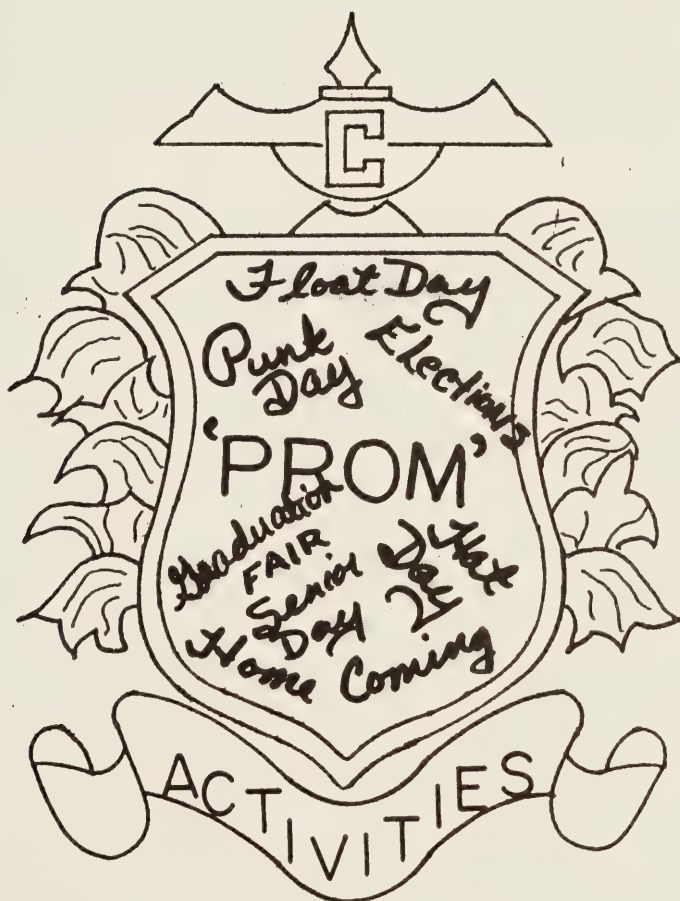 C
Float Day
Punk
Day
Elections
'PROM'
Graduation
FAIR
Senior
Day
Hat
Day
Home Coming
ACTIVITIES